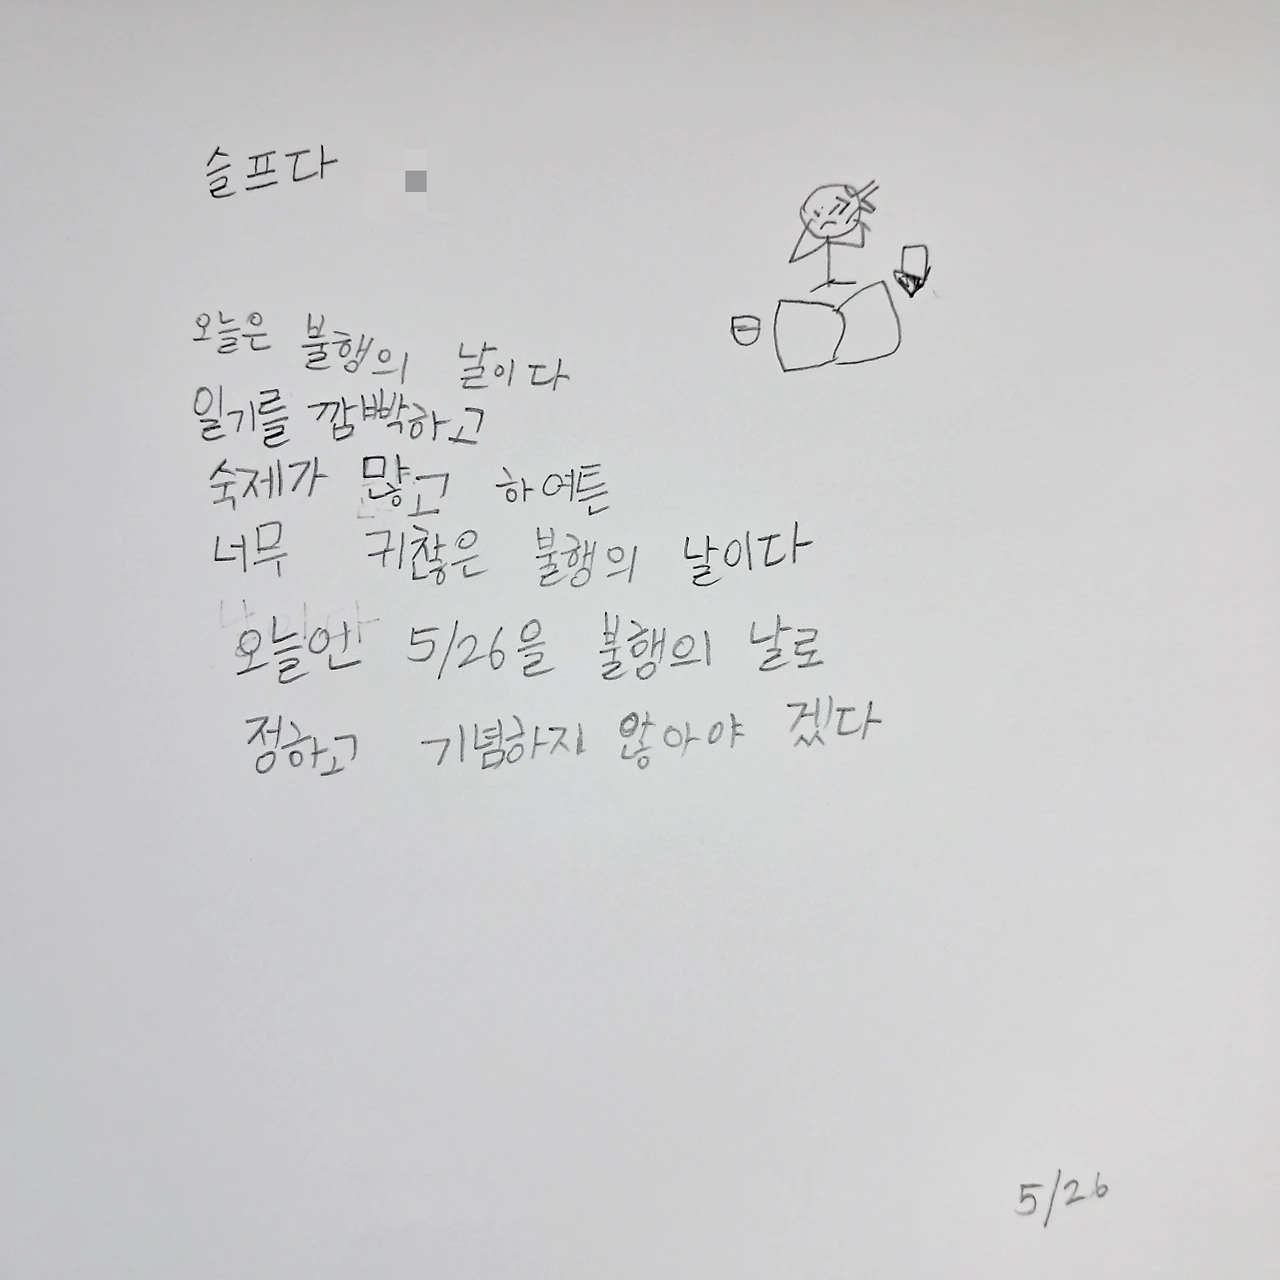 슬프다
오늘은 불행의 날이다
일기를 깜빡하고
숙제가 많고 하여튼
너무 귀찮은 불행의 날이다
오늘언 5/26을 불행의 날로
정하고 기념하지 않아야 겠다
5/26